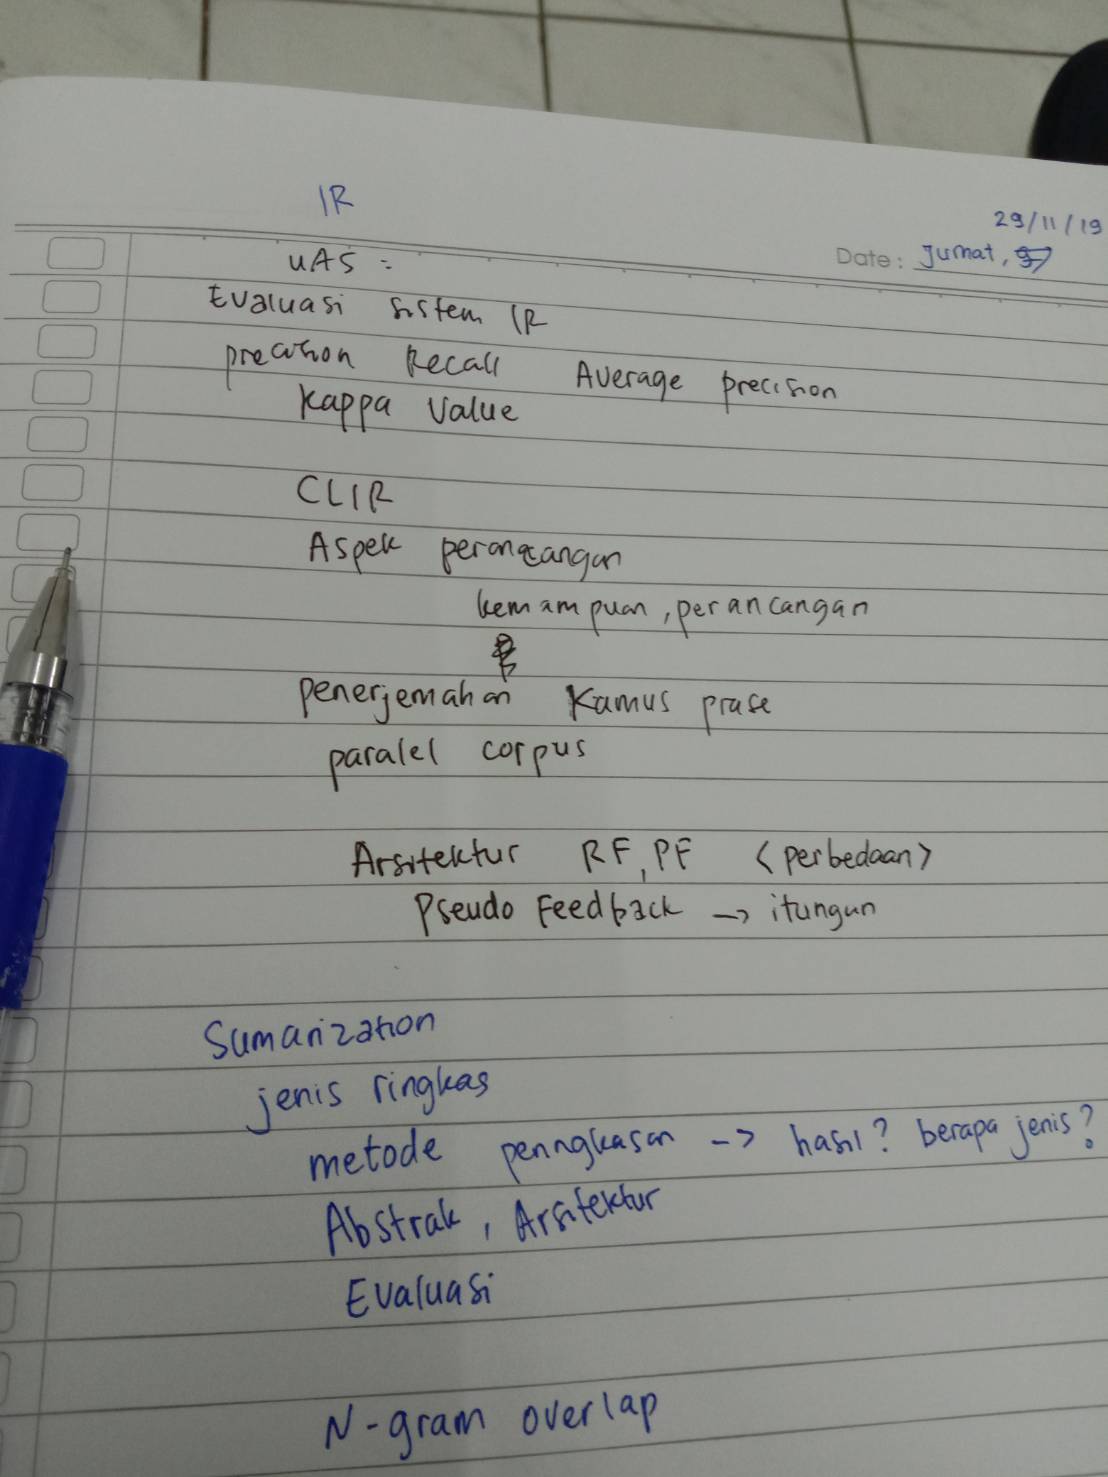 IR
29/11/19
Date: Jumat,
UAS =
Evaluasi sistem IR
precision Recall Average precision
Kappa Value
CLIR
Aspek perancangan
kemampuan, perancangan
penerjemahan Kamus prase
paralel corpus
Arsitektur RF, PF <perbedaan>
Pseudo Feedback -> itungan
Sumarization
jenis ringkas
metode peringkasan -> hasil? berapa jenis?
Abstrak, Arsitektur
Evaluasi
N-gram overlap